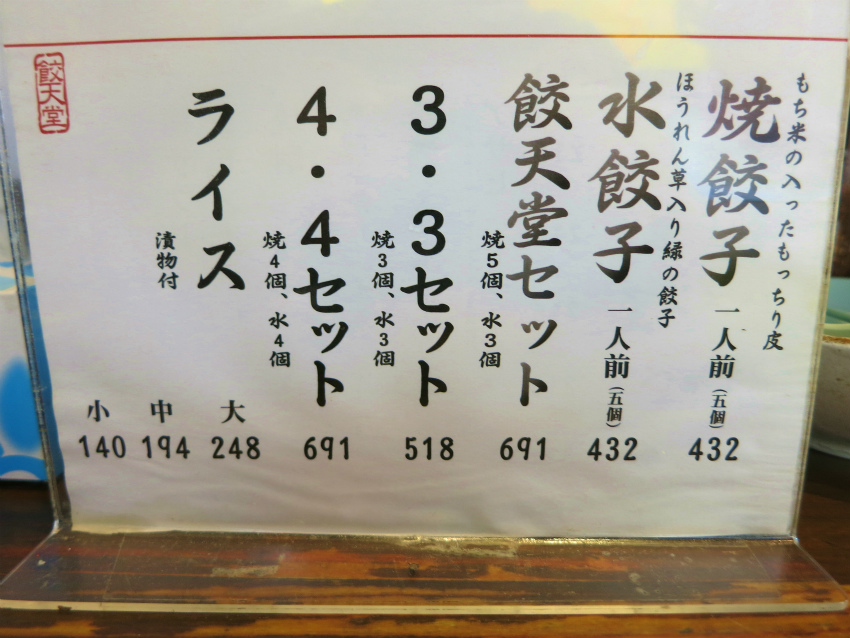 もち米の入ったもっちり皮
焼餃子 一人前(五個)
432
ほうれん草入り緑の餃子
水餃子 一人前(五個)
432
餃天堂セット
焼5個、水3個
691
3・3セット
焼3個、水3個
518
4・4セット
焼4個、水4個
691
ライス
漬物付
大
248
中
194
小
140
餃天堂